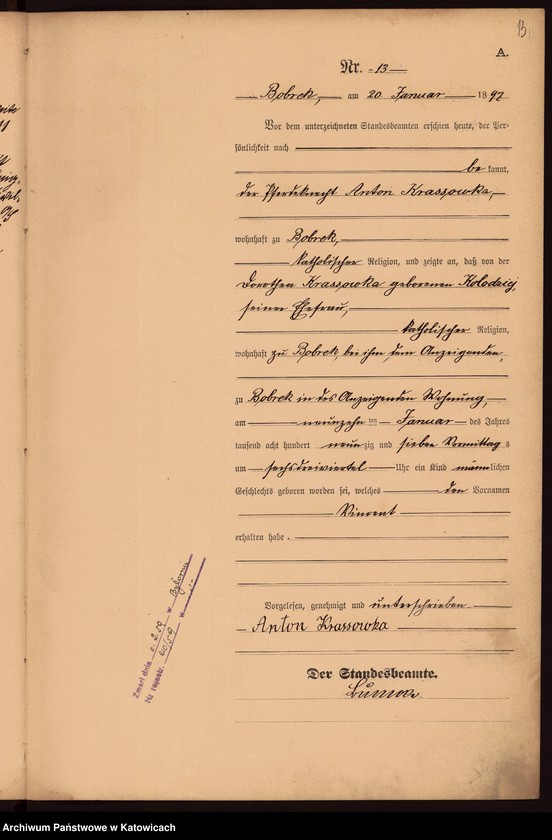 13
A.
Nr. 13
Bobrek, am 20 Januar 1897
Vor dem unterzeichneten Standesbeamten erschien heute, der Per-
sönlichkeit nach
be kannt,
der Pferdeknecht Anton Krassowka,
wohnhaft zu Bobrek,
katholischer Religion, und zeigte an, daß von der
Dorothea Krassowka geborenen Kolodziej,
seiner Ehefrau,
katholischer Religion,
wohnhaft zu Bobrek, bei ihm dem Anzeigenden,
zu Bobrek in des Anzeigenden Wohnung,
am neunzehn ten Januar des Jahres
tausend acht hundert neun zig und sieben Vormittag s
um sechsdreiviertel Uhr ein Kind männlichen
Geschlechts geboren worden sei, welches den Vornamen
Vincent
erhalten habe.
Vorgelesen, genehmigt und unterschrieben
Anton Krassowka
Der Standesbeamte.
Zmarł dnia 2.59 w
Nr rejestr. 20/59 w
Archiwum Państwowe w Katowicach